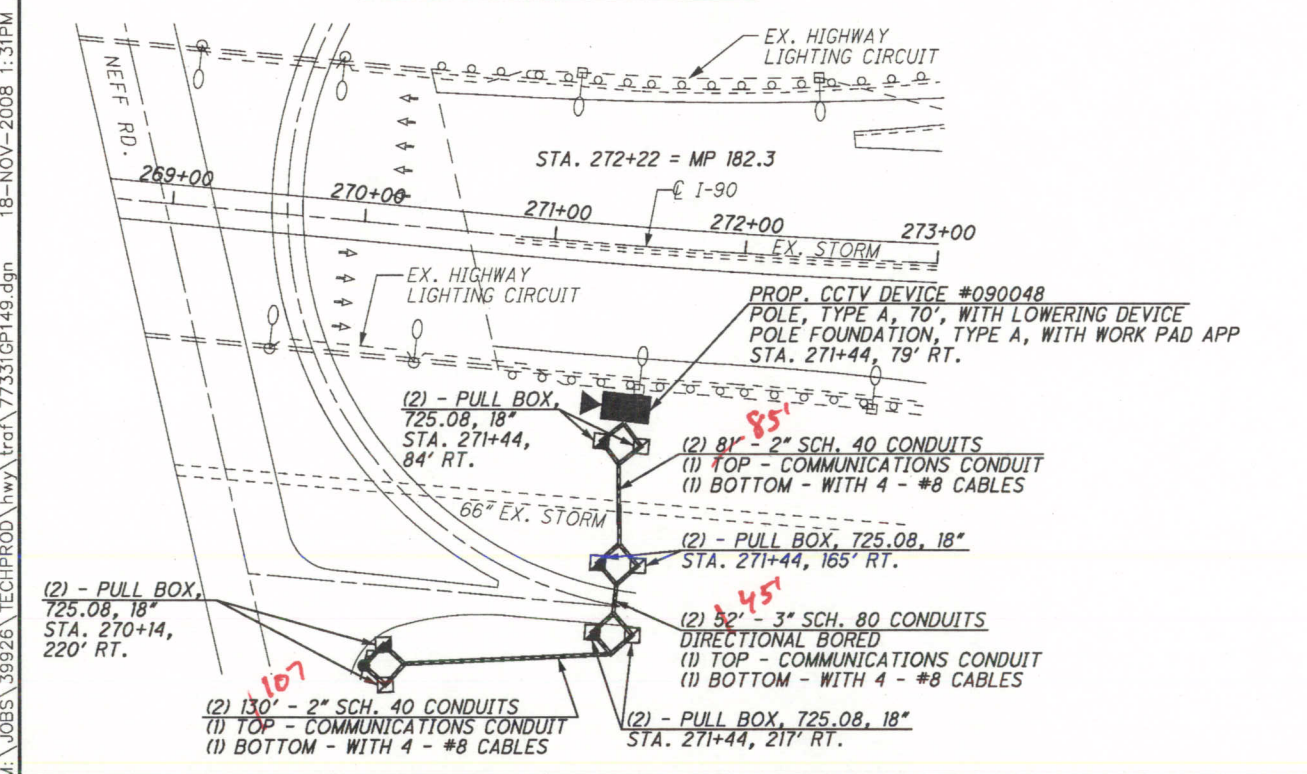 M:\JOBS\39926\TECHPROD\hwy\traf\77331GP149.dgn 18-NOV-2008 1:31PM
EX. HIGHWAY
LIGHTING CIRCUIT
NEFF RD.
STA. 272+22 = MP 182.3
269+00
270+00
271+00
272+00
273+00
℄ I-90
EX. STORM
EX. HIGHWAY
LIGHTING CIRCUIT
PROP. CCTV DEVICE #090048
POLE, TYPE A, 70', WITH LOWERING DEVICE
POLE FOUNDATION, TYPE A, WITH WORK PAD APP
STA. 271+44, 79' RT.
(2) - PULL BOX,
725.08, 18"
STA. 271+44,
84' RT.
85'
(2) 81' - 2" SCH. 40 CONDUITS
(1) TOP - COMMUNICATIONS CONDUIT
(1) BOTTOM - WITH 4 - #8 CABLES
66" EX. STORM
(2) - PULL BOX, 725.08, 18"
STA. 271+44, 165' RT.
(2) - PULL BOX,
725.08, 18"
STA. 270+14,
220' RT.
45'
(2) 52' - 3" SCH. 80 CONDUITS
DIRECTIONAL BORED
(1) TOP - COMMUNICATIONS CONDUIT
(1) BOTTOM - WITH 4 - #8 CABLES
107
(2) 130' - 2" SCH. 40 CONDUITS
(1) TOP - COMMUNICATIONS CONDUIT
(1) BOTTOM - WITH 4 - #8 CABLES
(2) - PULL BOX, 725.08, 18"
STA. 271+44, 217' RT.